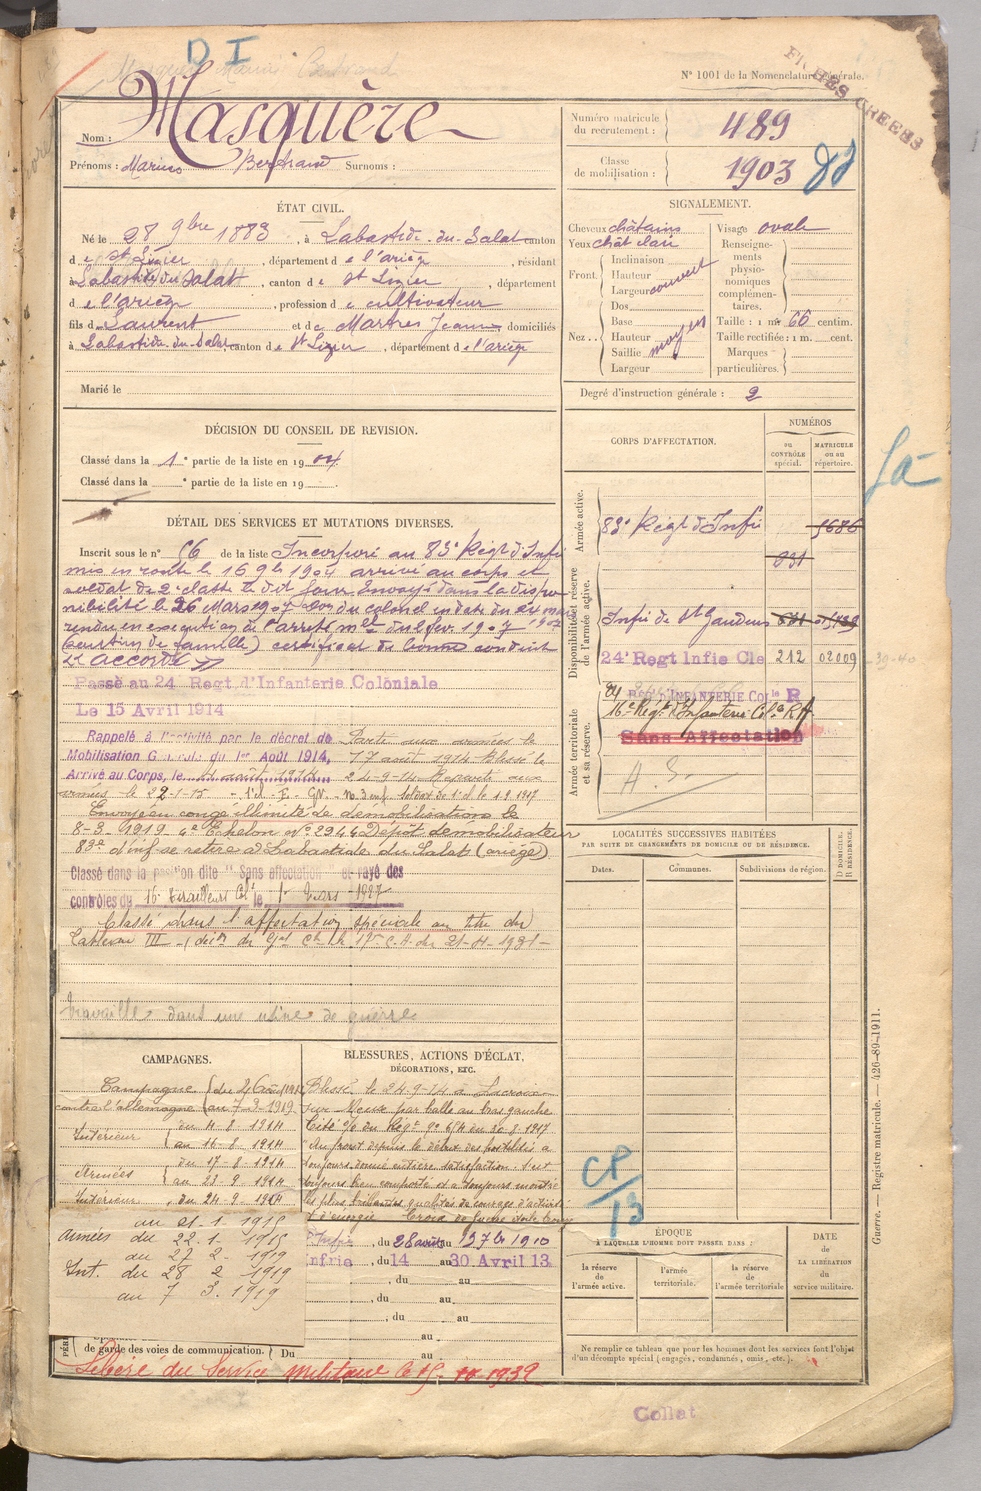 D I
N° 1001 de la Nomenclature générale.
FICHES CRÉÉES
Nom : Masquère
Prénoms : Marius Bertrand Surnoms :
Numéro matricule du recrutement : 489
Classe de mobilisation : 1903
ÉTAT CIVIL.
Né le 28 9bre 1883, à Labastide-du-Salat canton
de St Lizier, département de l'ariège, résidant
à Labastide du Salat, canton de St Lizier, département
de l'ariège, profession de cultivateur
fils de Laurent et de Martres Jeanne, domiciliés
à Labastide-du-Salat, canton de St Lizier, département de l'ariège
Marié le
SIGNALEMENT.
Cheveux châtains Visage ovale
Yeux chât clair Renseignements physionomiques complémentaires.
Front. Inclinaison
Hauteur
Largeur couvert
Nez.. Dos
Base
Hauteur
Saillie moyen
Largeur
Taille : 1 m 66 centim.
Taille rectifiée : 1 m. cent.
Marques particulières.
Degré d'instruction générale : 2
DÉCISION DU CONSEIL DE REVISION.
Classé dans la 1e partie de la liste en 1904.
Classé dans la e partie de la liste en 19
DÉTAIL DES SERVICES ET MUTATIONS DIVERSES.
Inscrit sous le n° 56 de la liste Incorporé au 83e Régt d'Infie
mis en route le 16 9bre 1904 arrivé au corps et
soldat de 2e classe le dit jour Envoyé dans la dispo
nibilité le 26 Mars 1907 don du colonel en date du 24 mars
rendu en exécution de l'arrêté mel du 2 fev. 1907 1907
(soutien de famille) certificat de bonne conduite
"accordé"
Passé au 24 Regt d'Infanterie Coloniale
Le 15 Avril 1914
Rappelé à l'activité par le décret de
Mobilisation Générale du 1er Août 1914,
Arrivé au Corps, le août 1914
Parti aux armées le
17 août 1914 Blessé le
24-9-14 Reparti aux
armées le 22-1-15
Envoyé en congé illimité de démobilisation le
8-3-1919 4e Echelon N° 2944 Dépôt démobilisateur
83e d'inf se retire à Labastide du Salat (ariège)
Classé dans la position dite "Sans affectation" et rayé des
contrôles du 16e Tirailleurs Cl le 1er Mars
Classé dans l'affectation spéciale au titre du
Tableau III
Travaille dans une usine de guerre
CORPS D'AFFECTATION.
NUMÉROS
au CONTRÔLE spécial.
MATRICULE ou au répertoire.
Armée active.
83e Régt d'Infie 5686
831
Disponibilité et réserve de l'armée active.
Infie de St Gaudens
24e Regt Infie Cle 212 02009
39-40
Armée territoriale et sa réserve.
24 Régt d'INFANTERIE Colle R
16e Régt d'Infanterie Cole R A
Sans Affectation
A. S.
LOCALITÉS SUCCESSIVES HABITÉES
PAR SUITE DE CHANGEMENTS DE DOMICILE OU DE RÉSIDENCE.
Dates. Communes. Subdivisions de région. D DOMICILE. R RÉSIDENCE.
CAMPAGNES.
Campagne
contre l'allemagne
Intérieur du 4-8-1914
au 16-8-1914
Armées du 17-8-1914
au 23-9-1914
Intérieur du 24-9-1914
au 21-1-1915
Armées du 22.1.1915
au 27-2-1919
Int. du 28 2 1919
au 7 3.1919
BLESSURES, ACTIONS D'ÉCLAT, DÉCORATIONS, ETC.
Blessé le 24-9-14 à Lacroix
sur Meuse par balle au bras gauche
"Au front depuis le début des hostilités a
toujours donné entière satisfaction. s'est
toujours bien comporté et a toujours montré
les plus brillantes qualités de courage d'activité
et d'énergie. Croix de Guerre étoile
Infie, du 28 août au 1910
Infrie, du 14 au 30 Avril 13
, du au
, du au
au
de garde des voies de communication. Du au
Libéré du Service militaire le 15-10-1932
CP/13
ÉPOQUE
À LAQUELLE L'HOMME DOIT PASSER DANS :
la réserve de l'armée active.
l'armée territoriale.
la réserve de l'armée territoriale
DATE de LA LIBÉRATION du service militaire.
Ne remplir ce tableau que pour les hommes dont les services font l'objet d'un décompte spécial (engagés, condamnés, omis, etc.).
Guerre. — Registre matricule. — 426-89-1911.
Collat